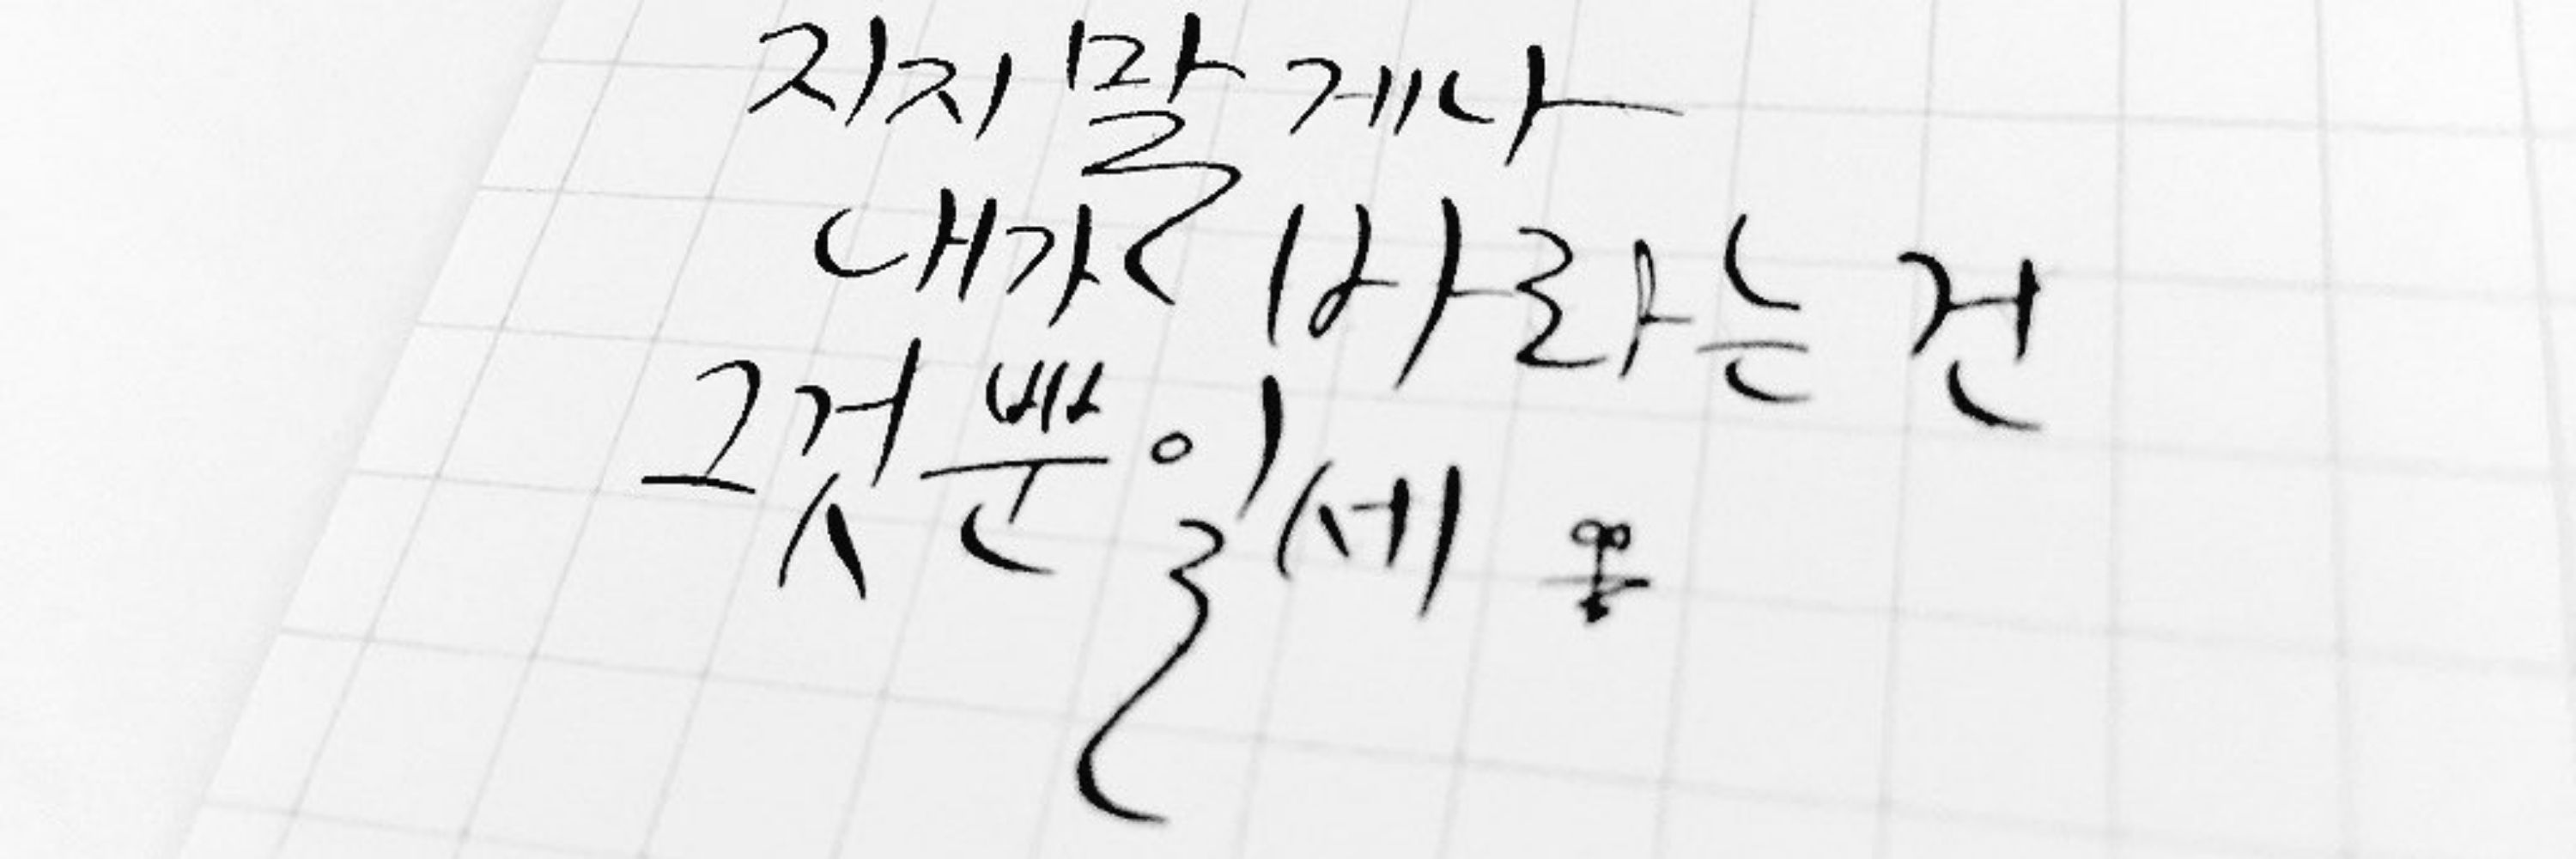 지지 말게나
내가 바라는 건
그것뿐일세